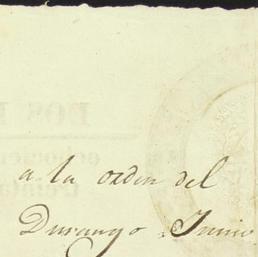 a la orden del
Durango Junio